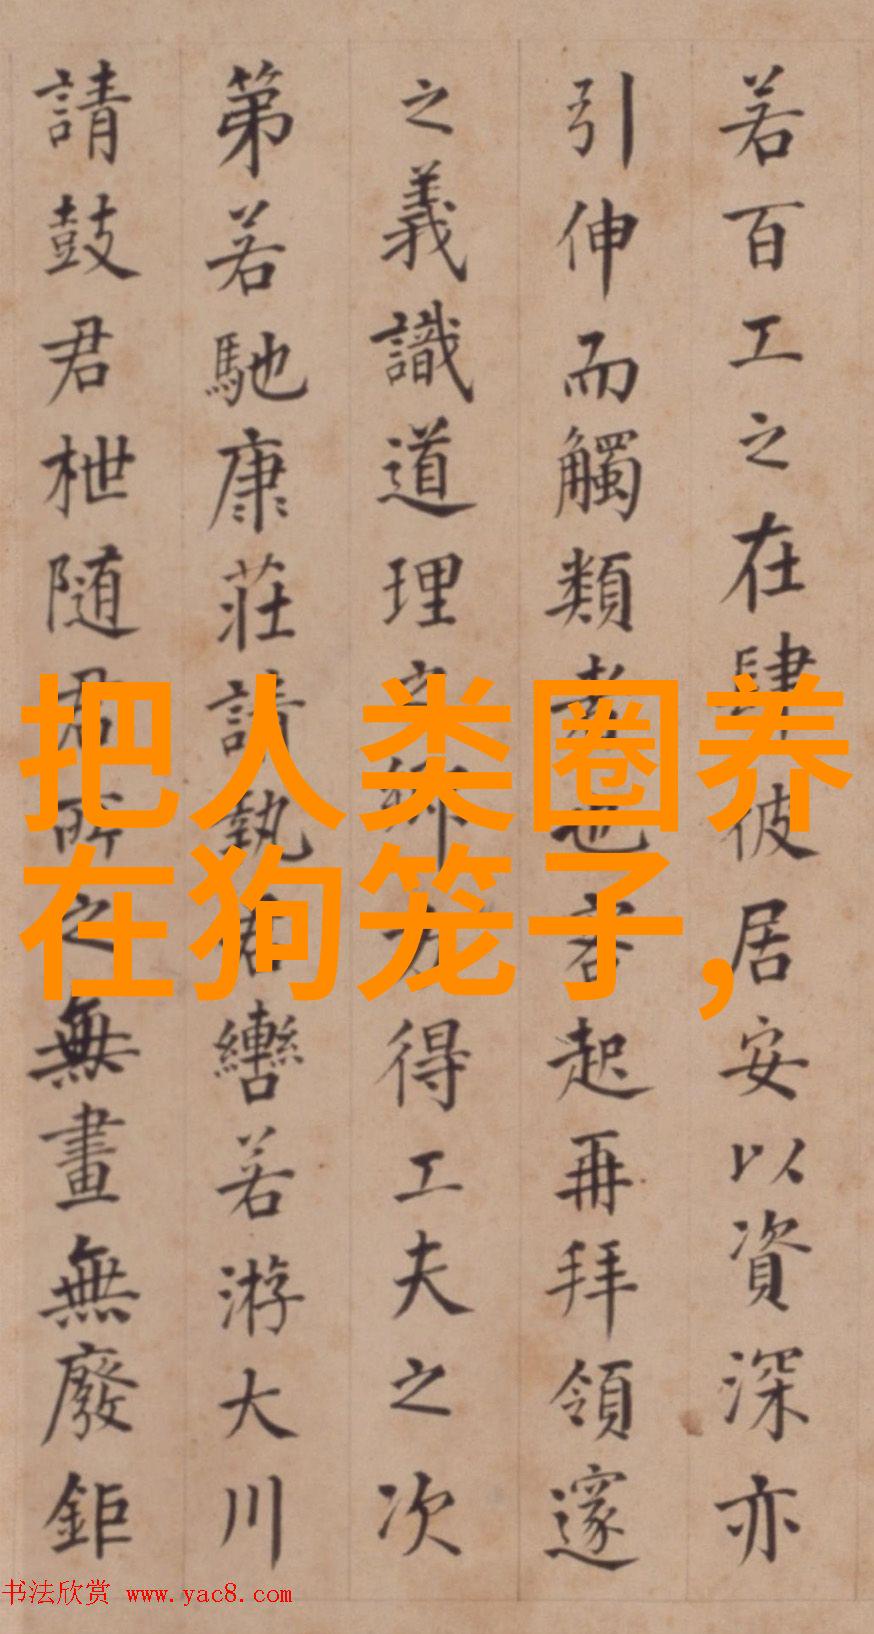 若百工之在肆彼居安以資深亦
引伸而觸類者也客起再拜領邃
之義識道理之鄉方得工夫之次
第若馳康莊請執君轡若游大川
請鼓君枻随君所之無畫無廢鉅
把人类圈养
在狗笼子,
书法欣赏 www.yac8.com